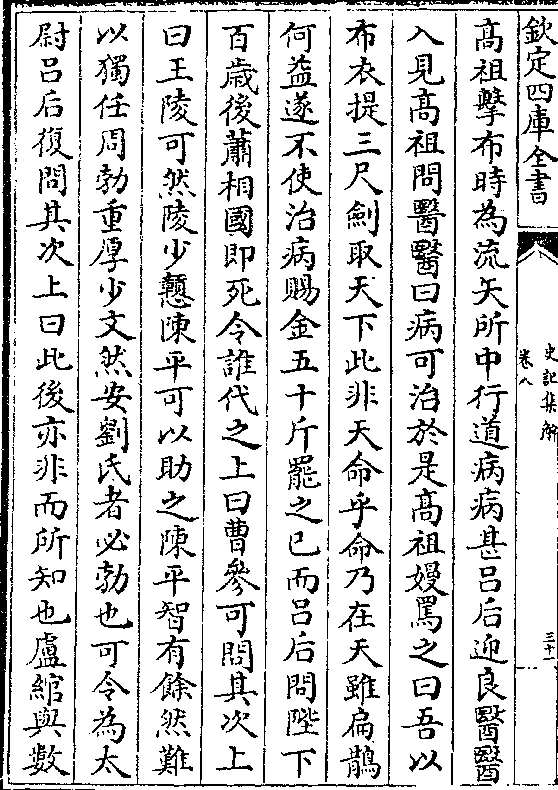 欽定四庫全書
史記集解
卷八
三十
髙祖擊布時為流矢所中行道病病甚吕后迎良醫醫
入見髙祖問醫醫曰病可治於是髙祖嫚罵之曰吾以
布衣提三尺劍取天下此非天命乎命乃在天雖扁鵲
何益遂不使治病賜金五十斤罷之已而吕后問陛下
百歳後蕭相國即死令誰代之上曰曹參可問其次上
曰王陵可然陵少戇陳平可以助之陳平智有餘然難
以獨任周勃重厚少文然安劉氏者必勃也可令為太
尉吕后復問其次上曰此後亦非而所知也盧綰與數